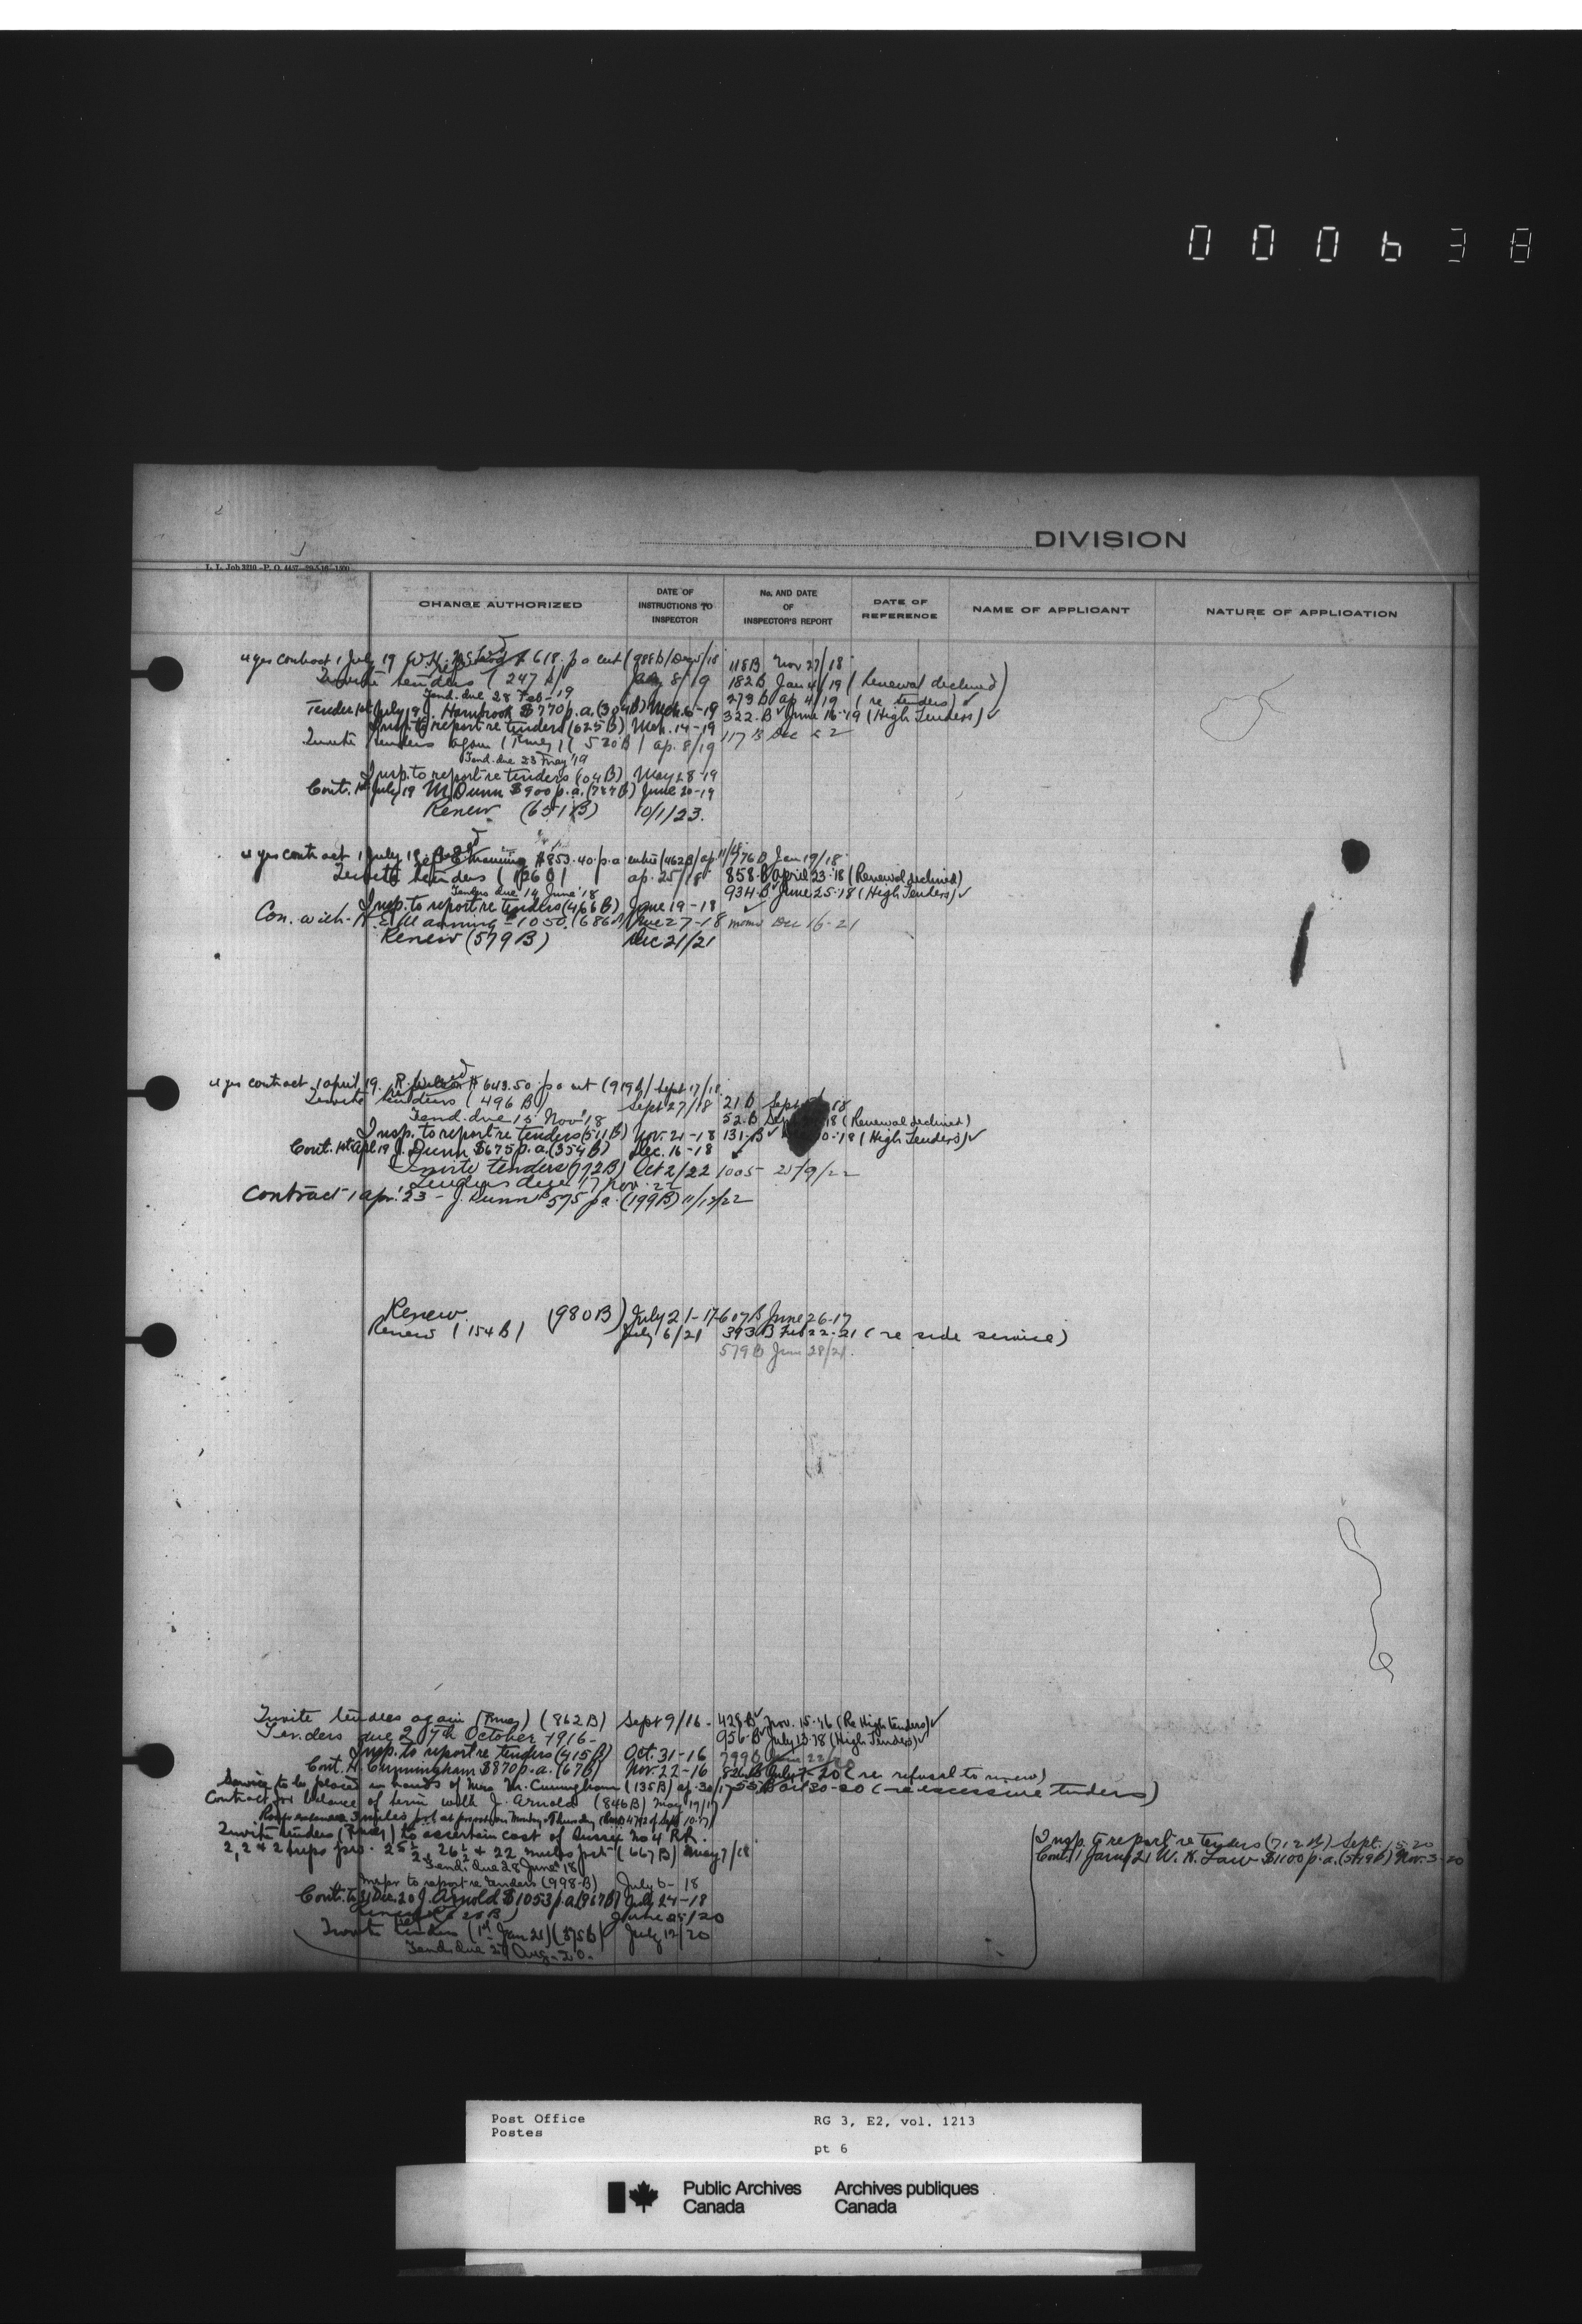 000638
DIVISION
L. L. Job 3210 - P. O. 4457
CHANGE AUTHORIZED
DATE OF INSTRUCTIONS TO INSPECTOR
No. AND DATE OF INSPECTOR'S REPORT
DATE OF REFERENCE
NAME OF APPLICANT
NATURE OF APPLICATION
4 yrs contract 1 July 19 W.H. $618 p a 118B Nov 27/18
Invite tenders (247 B) Jan 8/19 182B Jan 4/19 (Renewal declined)
Tend. due 28 Feb-19 273 B ap 4/19 (re tenders) ✓
Tender 1st July 19 J. Hambrook $770 p.a. Mch. 6-19 322.B ✓ June 16-19 (High Tenders) ✓
Insp. to report re tenders (625B) Mch. 14-19
Invite tenders again (530B) ap. 8/19 117 B Dec 22
Tend. due 23 May '19
Insp. to report re tenders (04B) May 28-19
Cont. 1st July 19 M. Dunn $900 p.a. June 20-19
Renew (651B) 10/1/23.
4 yrs contract 1 July 18 Manning $853.40 p.a. (462B) ap. 11/18 776B Jan 19/18
Invite tenders (1260) ap. 25/18 858.B April 23-18 (Renewal declined)
Tenders due 14 June '18 934.B ✓ June 25-18 (High Tenders) ✓
Insp. to report re tenders (466B) June 19-18
Con. with H.E. Manning - 1050. (686B) June 27-18 memo Dec 16-21
Renew (579B) Dec 21/21
4 yrs contract 1 april 19. R. Wilson $643.50 p a (919B) Sept 17/18
Invite tenders (496 B) Sept 27/18 21 B Sept
Tend. due 15 Nov '18 52.B 18 (Renewal declined)
Insp. to report re tenders (511B) Nov. 21-18 131-B ✓ (High Tenders) ✓
Cont. 1st Apl 19 J. Dunn $675 p.a. (354B) Dec. 16-18
Invite tenders (772B) Oct 2/22 1005 25/9/22
Tenders due 17 Nov. 22
Contract 1 apr. '23 - J. Dunn $575 p.a. (199B) 11/12/22
Renew (980B) July 21-17 607B June 26-17
Renew (154B) July 6/21 393 B Feb 22-21 (re side service)
579B June 28/21.
Invite tenders again (862B) Sept 9/16. 428B ✓ Nov. 15-16 (Re High tenders) ✓
Tenders due 27th October 1916 - 956.B ✓ July 13-18 (High Tenders) ✓
Insp. to report re tenders (415B) Oct. 31-16 799B June 22/20
Cont. H. Cunningham $870 p.a. (67B) Nov. 22-16 826.B July 7-20 (re refusal to renew)
Service to be placed in hands of Mrs M. Cunningham (135B) ap. 30/17 55B Oct 30-20 (re excessive tenders)
Contract for balance of term with J. Arnold (846B) May 19/17
Invite tenders to ascertain cost of Sussex No 4 RR.
2, 2 & 2 trips 25½, 26½ & 22 miles (667B) May 7/18
Tend. due 28 June '18
Insp to report re tenders (998-B) July 6-18
Cont. to 31 Dec. 20 J. Arnold $1053 p.a. (967B) July 24-18
June 25/20
Invite tenders (1st Jan 21) (375B) July 12/20
Tend. due 27 Aug-20.
Insp. to report re tenders (712B) Sept. 15-20
Cont. 1 Jany 21 W. K. Law $1100 p.a. (519B) Nov. 3-20
Post Office
Postes
RG 3, E2, vol. 1213
pt 6
Public Archives Canada
Archives publiques Canada